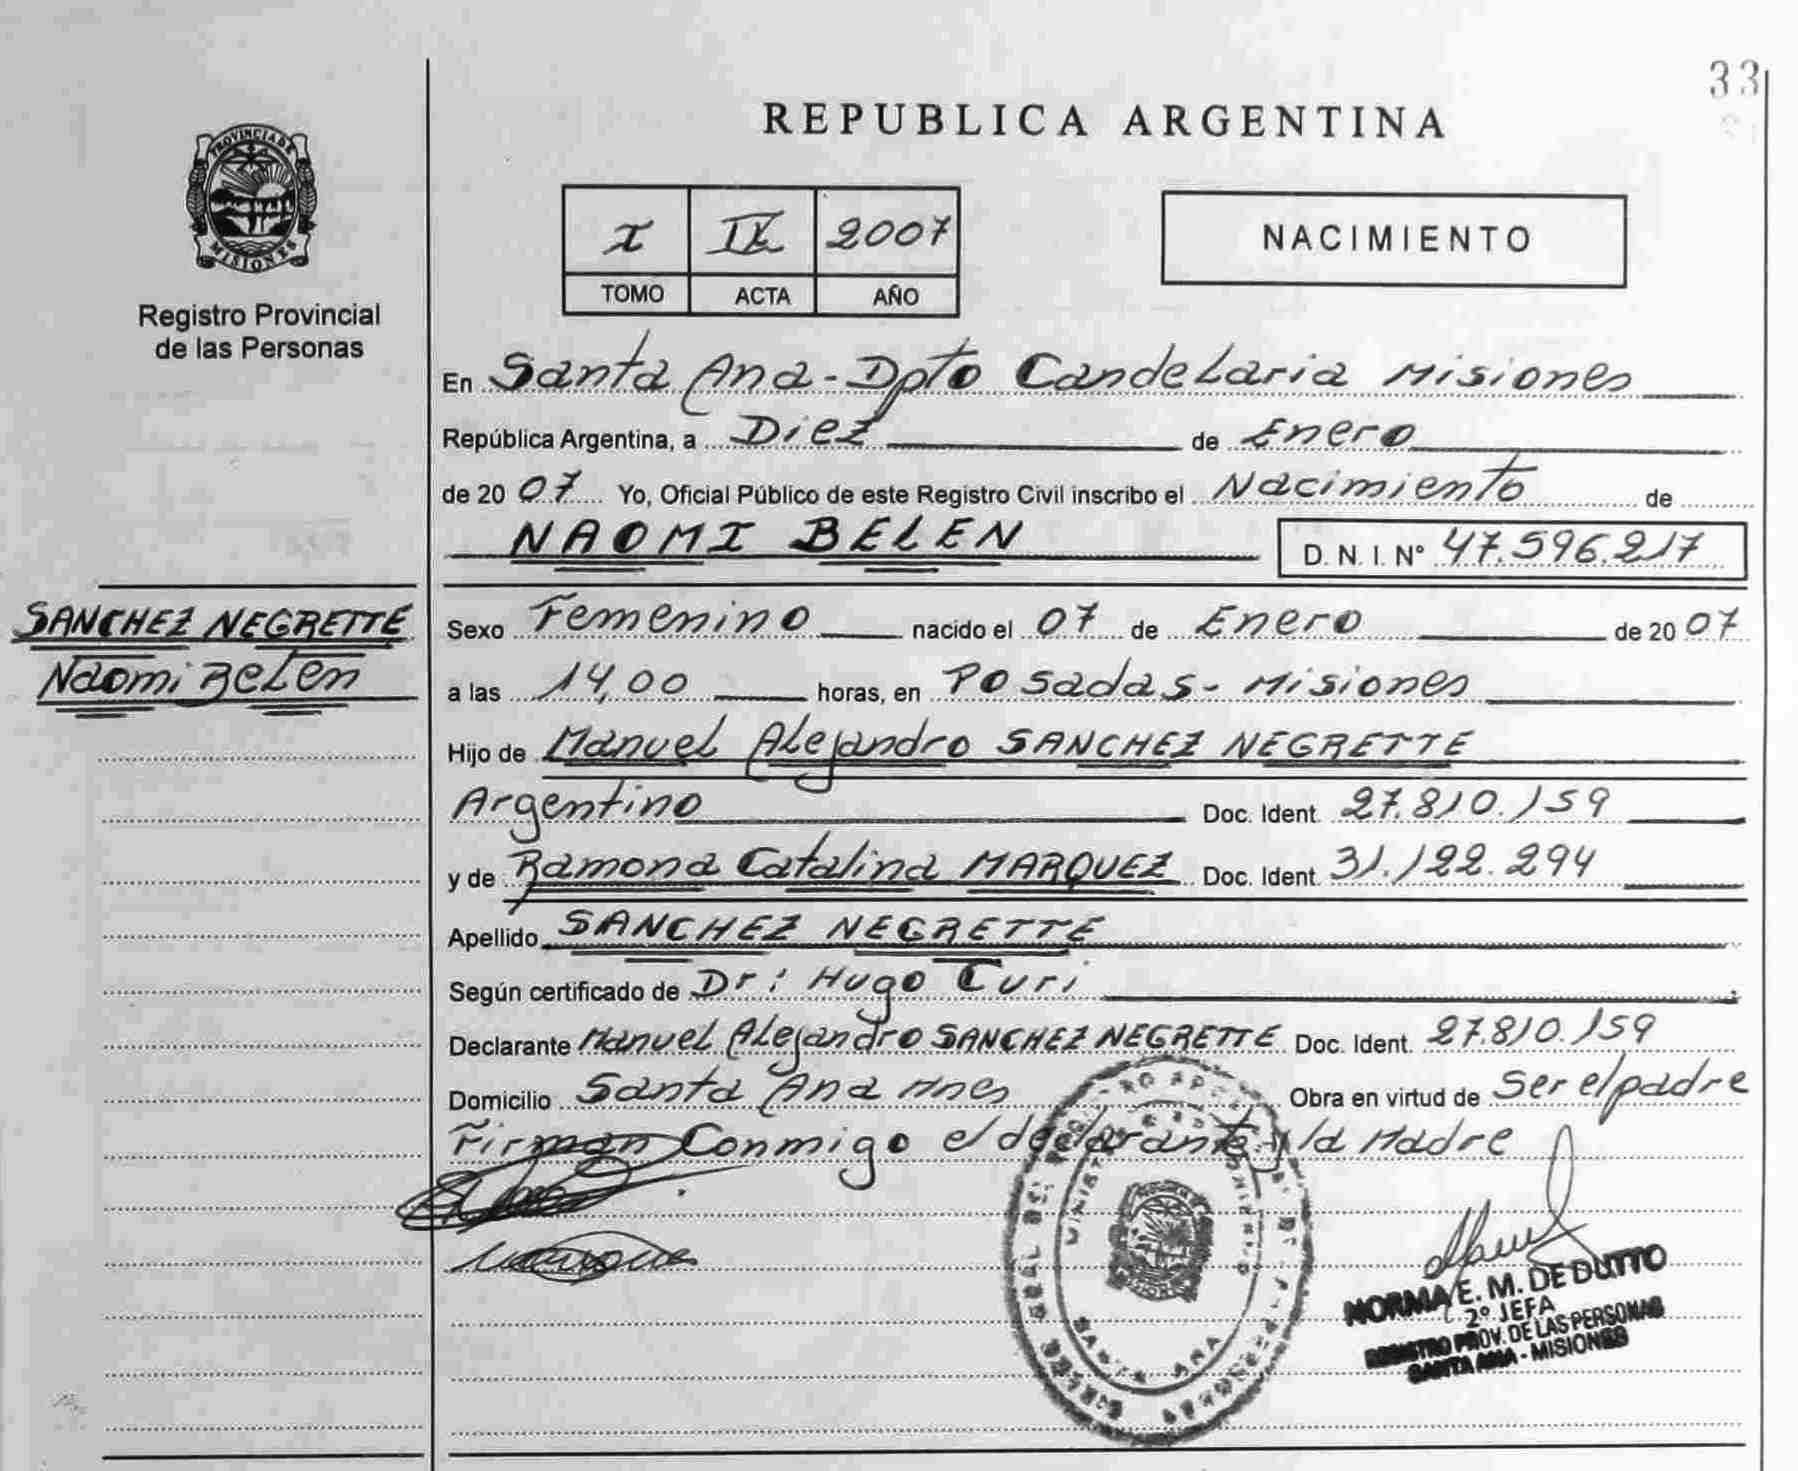 33
PROVINCIA DE
MISIONES
Registro Provincial
de las Personas
REPUBLICA ARGENTINA
I IX 2007
TOMO ACTA AÑO
NACIMIENTO
En Santa Ana - Dpto Candelaria Misiones
República Argentina, a Diez de Enero
de 20 07 Yo, Oficial Público de este Registro Civil inscribo el Nacimiento de
NAOMI BELEN D. N. I. N° 47.596.217
SANCHEZ NEGRETTE
Naomi Belen
Sexo Femenino nacido el 07 de Enero de 20 07
a las 14,00 horas, en Posadas - Misiones
Hijo de Manuel Alejandro SANCHEZ NEGRETTE
Argentino Doc. Ident. 27.810.159
y de Ramona Catalina MARQUEZ Doc. Ident. 31.122.294
Apellido SANCHEZ NEGRETTE
Según certificado de Dr: Hugo Curi
Declarante Manuel Alejandro SANCHEZ NEGRETTE Doc. Ident. 27.810.159
Domicilio Santa Ana Mnes Obra en virtud de Ser el padre
Firman Conmigo el declarante y la Madre
SANTA ANA
NORMA E. M. DE DUTTO
2° JEFA
REGISTRO PROV. DE LAS PERSONAS
SANTA ANA - MISIONES